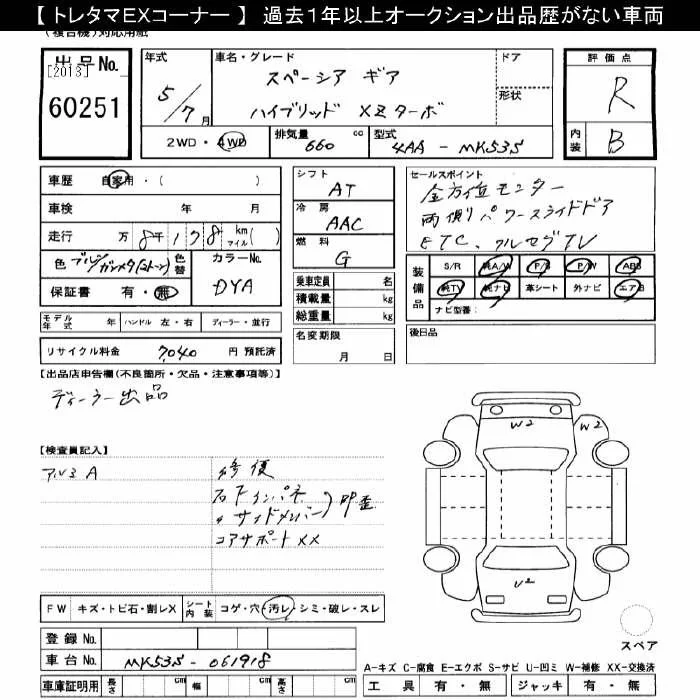 【トレタマEXコーナー】 過去1年以上オークション出品歴がない車両
(複合機)対応用紙
出品No. [2013] 60251
年式 5/7月
車名・グレード スペーシア ギア ハイブリッド XZターボ
ドア
形状
2WD・4WD 排気量 660 cc 型式 4AA - MK53S
評価点 R
内装 B
車歴 自家用・( )
車検 年 月
走行 万 8千 1 7 8 km マイル ( )
色 ブルー/ガンメタ(2トーン) 色替 カラーNo. DYA
保証書 有・無
モデル年式 年 ハンドル 左・右 ディーラー・並行
リサイクル料金 7,040 円 預託済
シフト AT
冷房 AAC
燃料 G
乗車定員 名
積載量 kg
総重量 kg
名変期限 月 日
セールスポイント
全方位モニター
両側パワースライドドア
ETC、フルセグTV
装備品 S/R 純A/W P/S P/W ABS
純TV 純ナビ 革シート 外ナビ エアB
ナビ型番:
後日品
【出品店申告欄(不良箇所・欠品・注意事項等)】
ディーラー出品
【検査員記入】
アルミA
修復
右Fインパネ
〃サイドメンバー
凹歪
コアサポートXX
W2 W2
U2
FW キズ・トビ石・割レX シート内装 コゲ・穴・汚レ・シミ・破レ・スレ
登録No.
車台No. MK53S - 061918
車庫証明用 長さ cm 幅 cm 高さ cm
スペア
A-キズ C-腐食 E-エクボ S-サビ U-凹ミ W-補修 XX-交換済
工具 有・無 ジャッキ 有・無